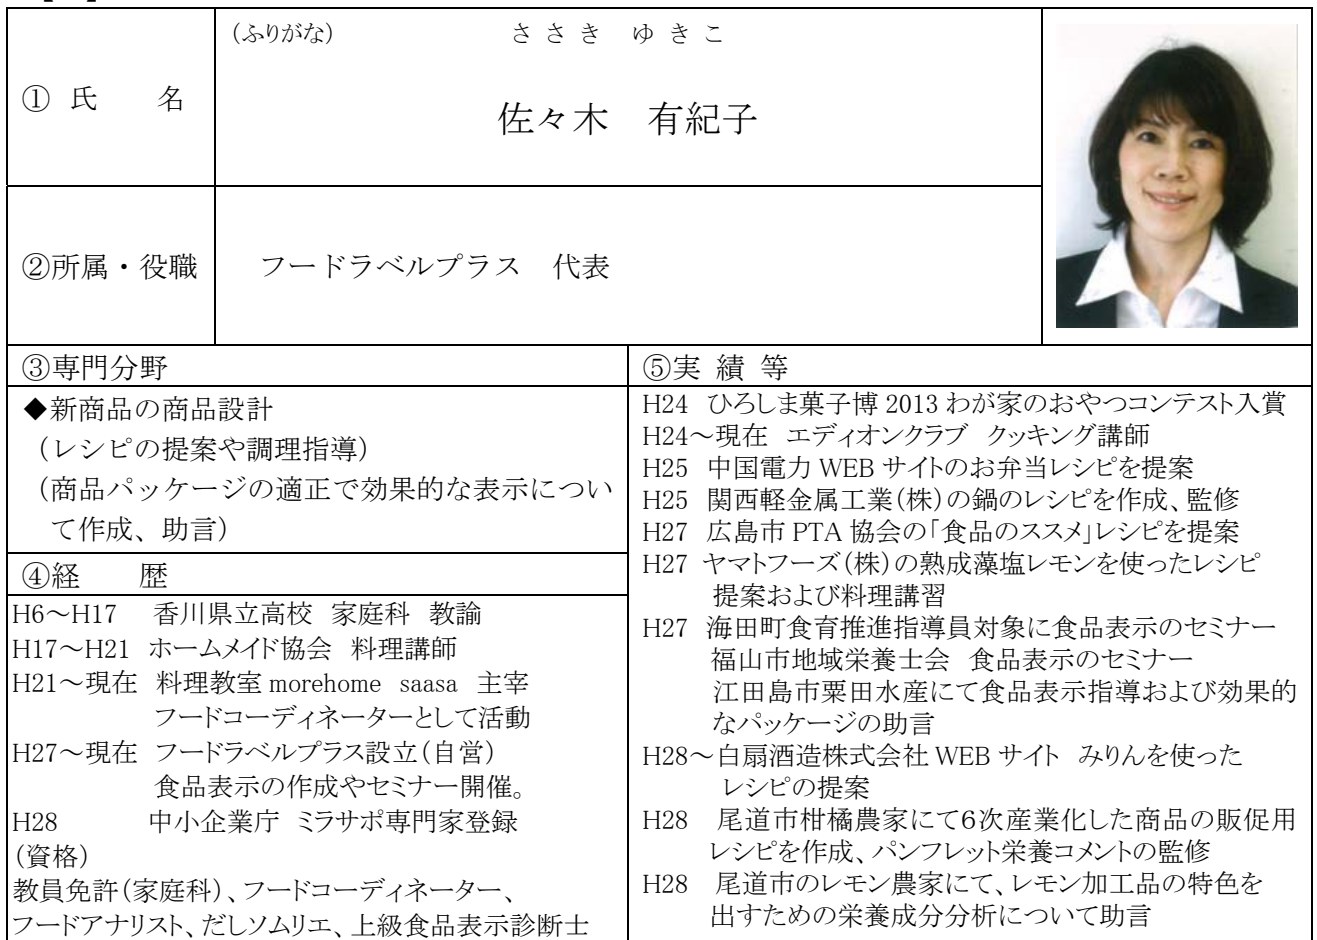 (ふりがな) ささき ゆきこ
① 氏 名
佐々木 有紀子
②所属・役職
フードラベルプラス 代表
③専門分野
◆新商品の商品設計
(レシピの提案や調理指導)
(商品パッケージの適正で効果的な表示につい
て作成、助言)
④経 歴
H6～H17 香川県立高校 家庭科 教諭
H17～H21 ホームメイド協会 料理講師
H21～現在 料理教室 morehome saasa 主宰
フードコーディネーターとして活動
H27～現在 フードラベルプラス設立(自営)
食品表示の作成やセミナー開催。
H28 中小企業庁 ミラサポ専門家登録
(資格)
教員免許(家庭科)、フードコーディネーター、
フードアナリスト、だしソムリエ、上級食品表示診断士
⑤実 績 等
H24 ひろしま菓子博 2013 わが家のおやつコンテスト入賞
H24～現在 エディオンクラブ クッキング講師
H25 中国電力 WEB サイトのお弁当レシピを提案
H25 関西軽金属工業(株)の鍋のレシピを作成、監修
H27 広島市 PTA 協会の「食品のススメ」レシピを提案
H27 ヤマトフーズ(株)の熟成藻塩レモンを使ったレシピ
提案および料理講習
H27 海田町食育推進指導員対象に食品表示のセミナー
福山市地域栄養士会 食品表示のセミナー
江田島市粟田水産にて食品表示指導および効果的
なパッケージの助言
H28～白扇酒造株式会社 WEB サイト みりんを使った
レシピの提案
H28 尾道市柑橘農家にて６次産業化した商品の販促用
レシピを作成、パンフレット栄養コメントの監修
H28 尾道市のレモン農家にて、レモン加工品の特色を
出すための栄養成分分析について助言